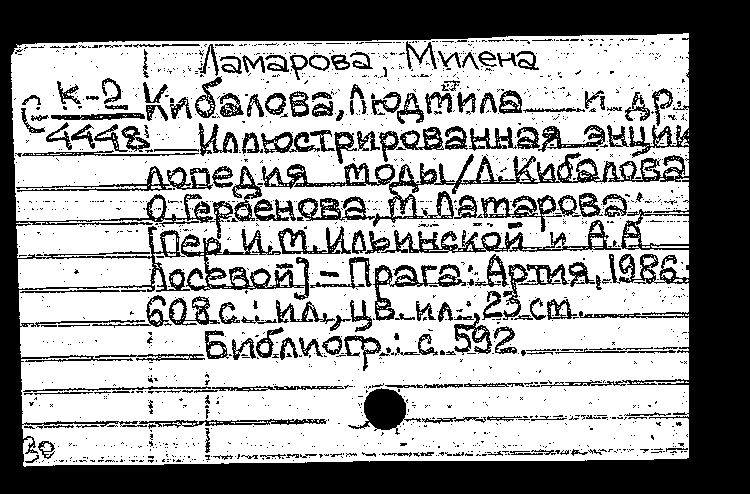 Ламарова, Милена
С К-2 Кибалова, Людмила и др.
4448 Иллюстрированная энцик
лопедия моды/Л. Кибалова
О. Гербенова, М. Ламарова;
[Пер. И.М. Ильинской и А.А
Лосевой]. – Прага: Артия, 1986.
608 с.: ил., цв. ил.; 23 см.
Библиогр.: с. 592.
30